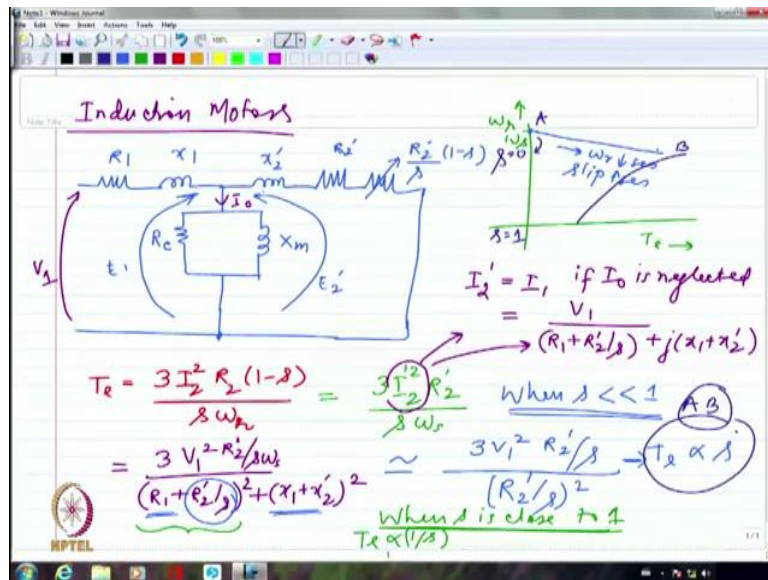 Note1 - Windows Journal
File Edit View Insert Actions Tools Help
100%
Note Title
Induction Motors
R1 x1 x2' R2' R2'/s (1-s)
I0
V1
Rc
Xm
E1
E2'
ωr
ωs
s=0
A
B
→ ωr ↓ses
slip ↑ses
s=1
Te →
I2' = I1 if I0 is neglected
= V1 / (R1+R2'/s) + j(x1+x2')
Te = 3 I2² R2 (1-s) / s ωr = 3 I2'² R2' / s ωs
When s << 1
AB
= 3 V1² R2'/sωs / (R1+R2'/s)² + (x1+x2')² ≃ 3V1² R2'/s / (R2'/s)² → Te ∝ s
When s is close to 1
Te ∝ (1/s)
NPTEL
1/1